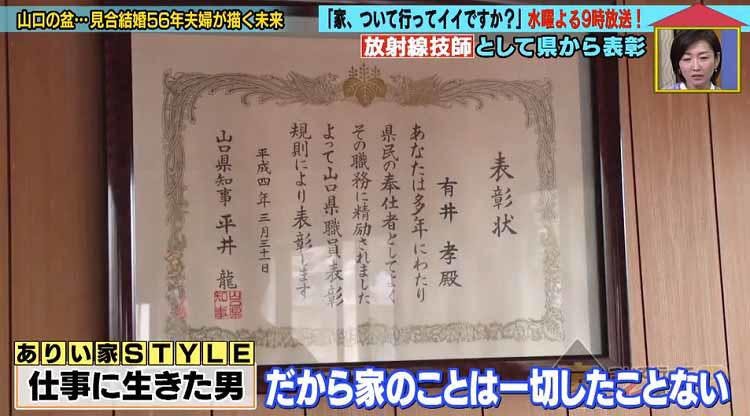 山口の盆…見合結婚56年夫婦が描く未来
「家、ついて行ってイイですか?」水曜よる9時放送!
放射線技師として県から表彰
表彰状
有井孝殿
あなたは多年にわたり
県民の奉仕者としてよく
その職務に精励されました
よって山口県職員表彰
規則により表彰します
平成四年三月三十一日
山口県知事 平井龍
ありい家STYLE
仕事に生きた男
だから家のことは一切したことない